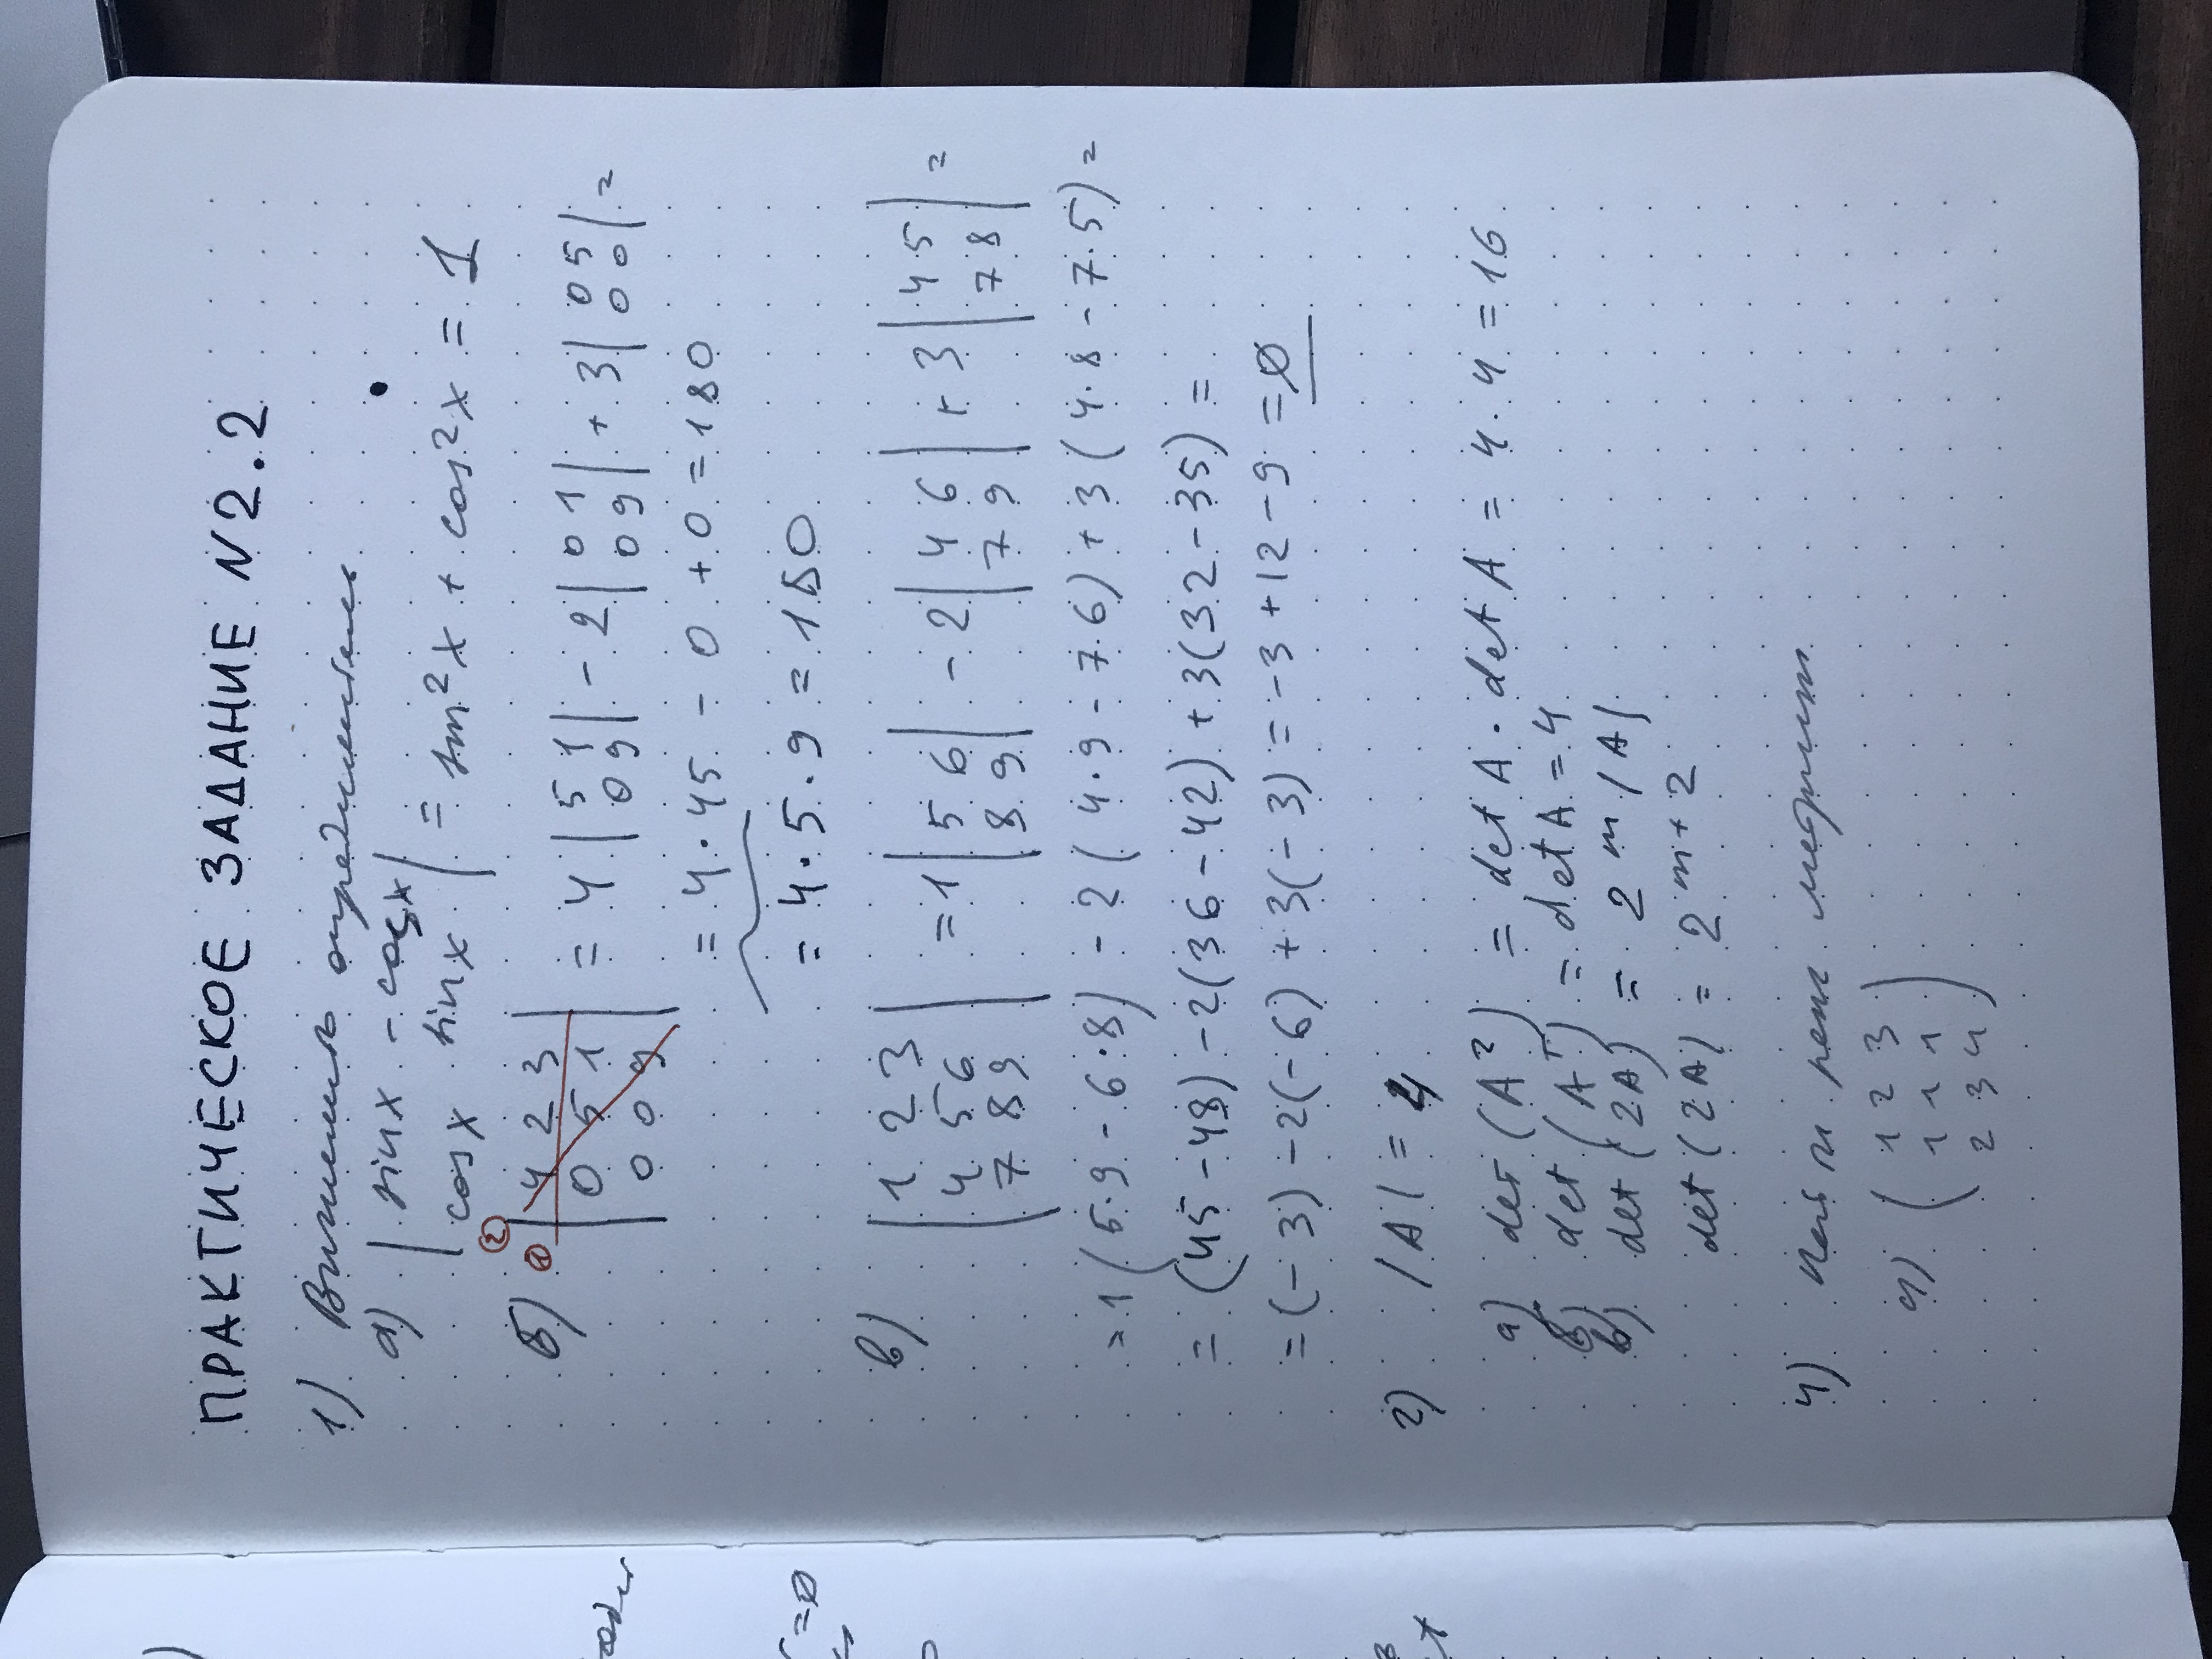 ПРАКТИЧЕСКОЕ ЗАДАНИЕ N2.2
1) Вычислить определитель
а) | sinx - cosx |
| cosx sinx | = sin²x + cos²x = 1
②
б) ① | 4 2 3 |
| 0 5 1 | = 4 | 5 1 | - 2 | 0 1 | + 3 | 0 5 | =
| 0 0 9 | | 0 9 | | 0 9 | | 0 0 |
= 4 · 45 - 0 + 0 = 180
= 4 · 5 · 9 = 180
в) | 1 2 3 |
| 4 5 6 | = 1 | 5 6 | - 2 | 4 6 | + 3 | 4 5 | =
| 7 8 9 | | 8 9 | | 7 9 | | 7 8 |
= 1 (5·9 - 6·8) - 2 (4·9 - 7·6) + 3 (4·8 - 7·5) =
= (45 - 48) - 2(36 - 42) + 3(32 - 35) =
= (- 3) - 2(- 6) + 3(- 3) = -3 + 12 - 9 = ∅
2) |A| = 4
а) det (A²) = det A · det A = 4 · 4 = 16
б) det (Aᵀ) = det A = 4
в) det (2A) = 2ᵐ |A|
det (2A) = 2ᵐ⁺²
4) Найти ранг матрицы
а) ( 1 2 3 )
( 1 1 1 )
( 2 3 4 )
= ∅